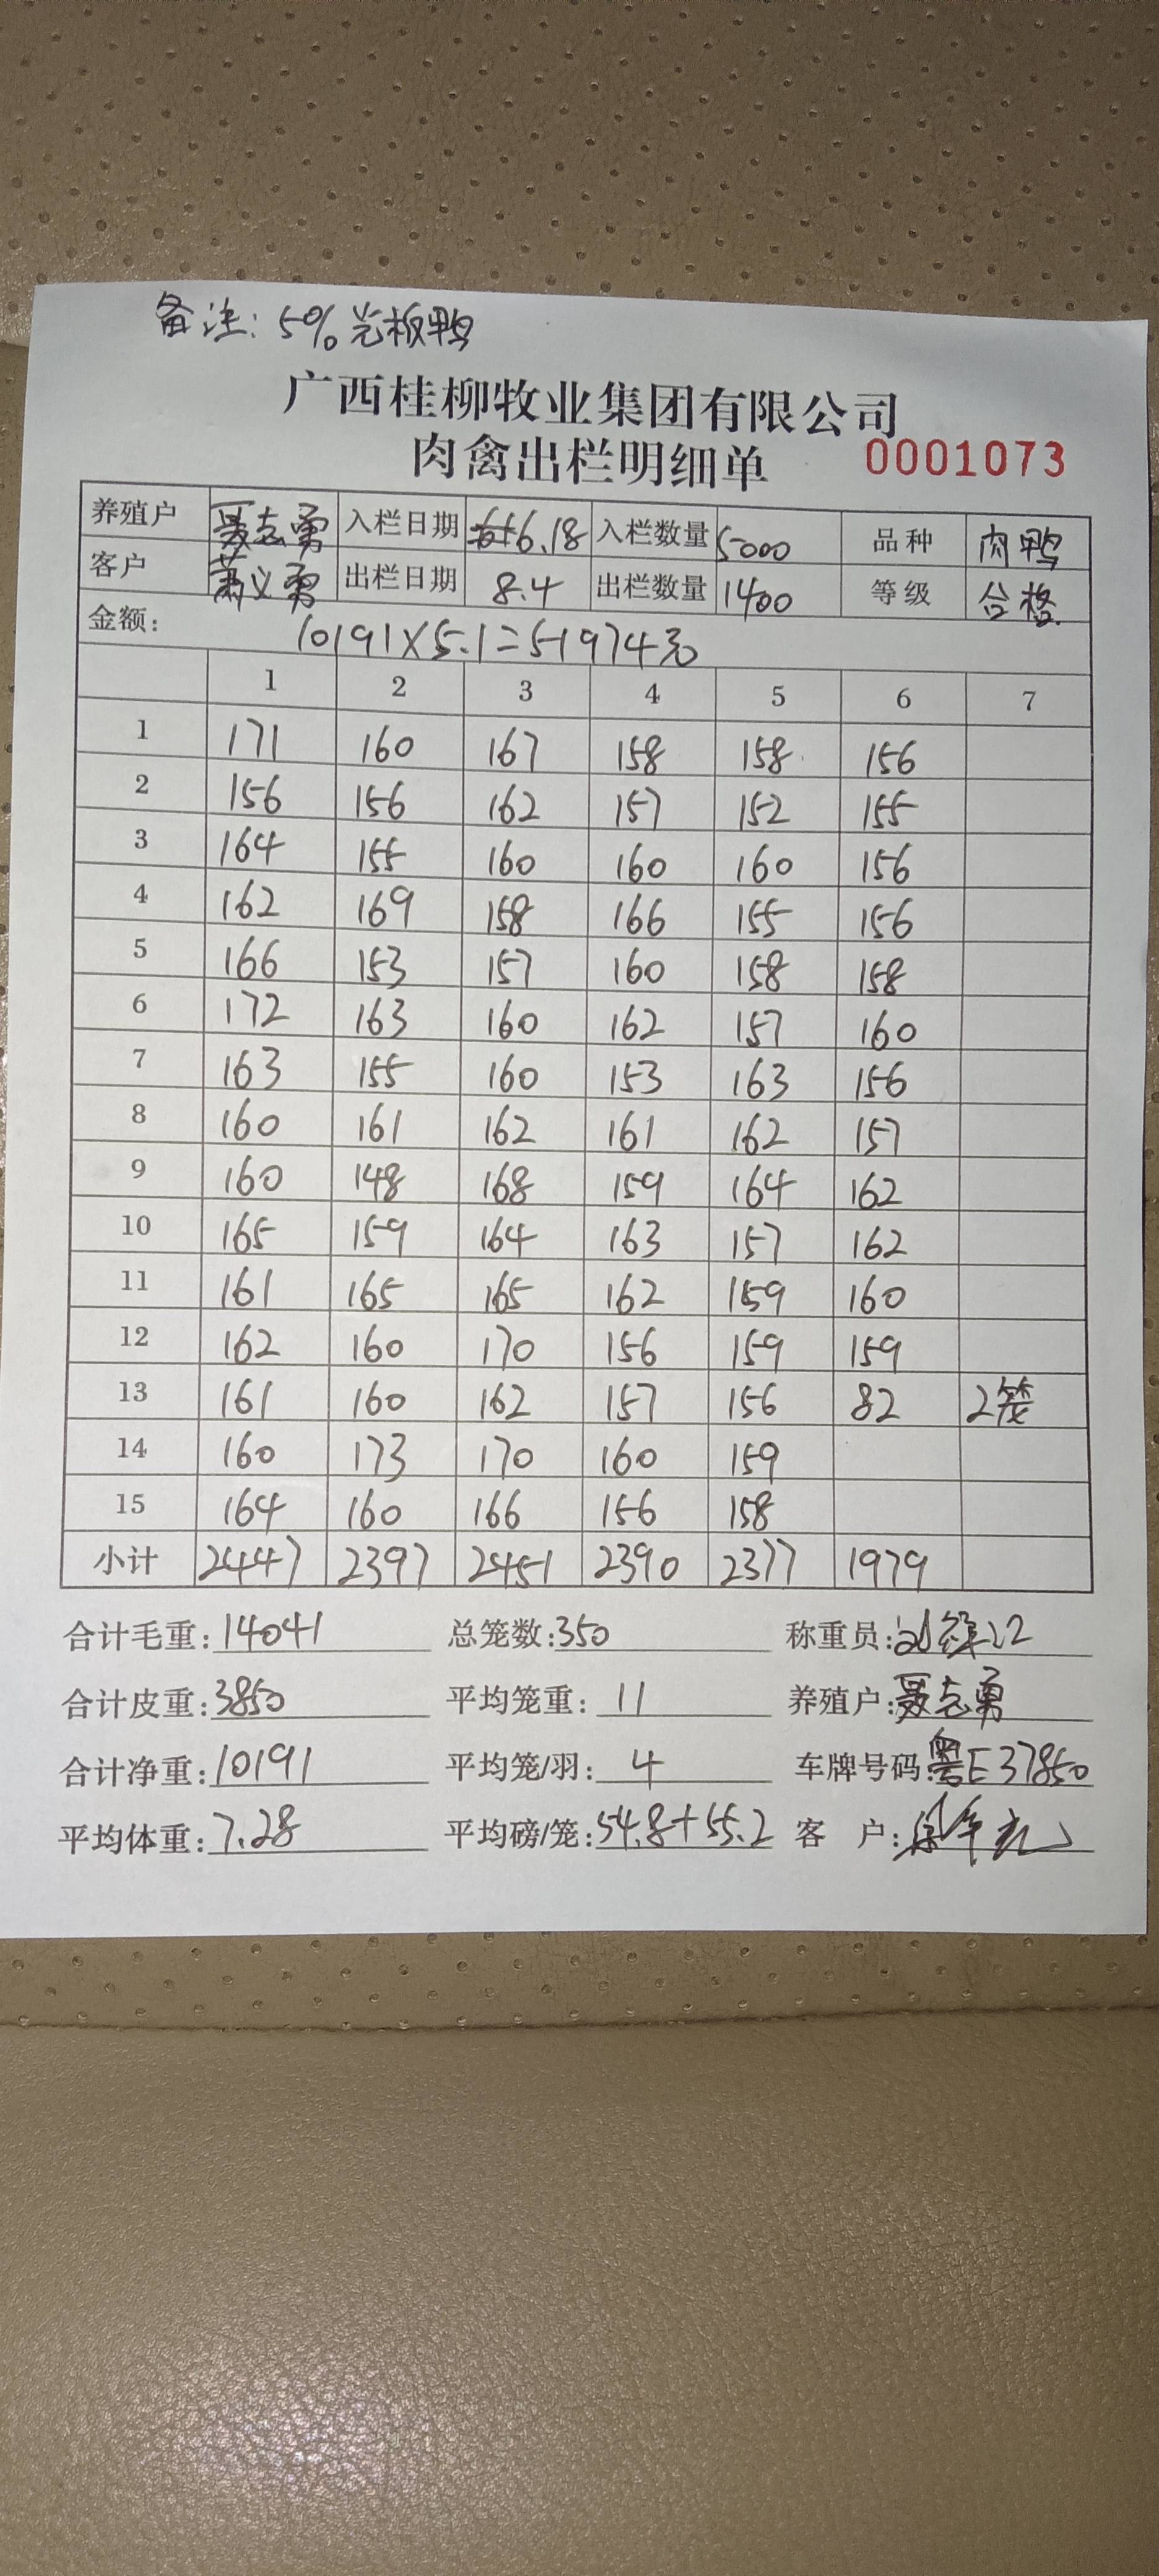 备注: 5% 光板鸭
广西桂柳牧业集团有限公司
肉禽出栏明细单 0001073
养殖户 聂志勇 入栏日期 6.18 入栏数量 5000 品种 肉鸭
客户 萧义勇 出栏日期 8.4 出栏数量 1400 等级 合格
金额: 10191×5.1=51974元
1 2 3 4 5 6 7
1 171 160 167 158 158 156
2 156 156 162 157 152 155
3 164 155 160 160 160 156
4 162 169 158 166 155 156
5 166 153 157 160 158 158
6 172 163 160 162 157 160
7 163 155 160 153 163 156
8 160 161 162 161 162 157
9 160 148 168 159 164 162
10 165 159 164 163 157 162
11 161 165 165 162 159 160
12 162 160 170 156 159 159
13 161 160 162 157 156 82 2笼
14 160 173 170 160 159
15 164 160 166 156 158
小计 2447 2397 2451 2390 2377 1979
合计毛重: 14041 总笼数: 350 称重员:
合计皮重: 3850 平均笼重: 11 养殖户: 聂志勇
合计净重: 10191 平均笼/羽: 4 车牌号码: 粤E37850
平均体重: 7.28 平均磅/笼: 54.8+55.2 客 户: